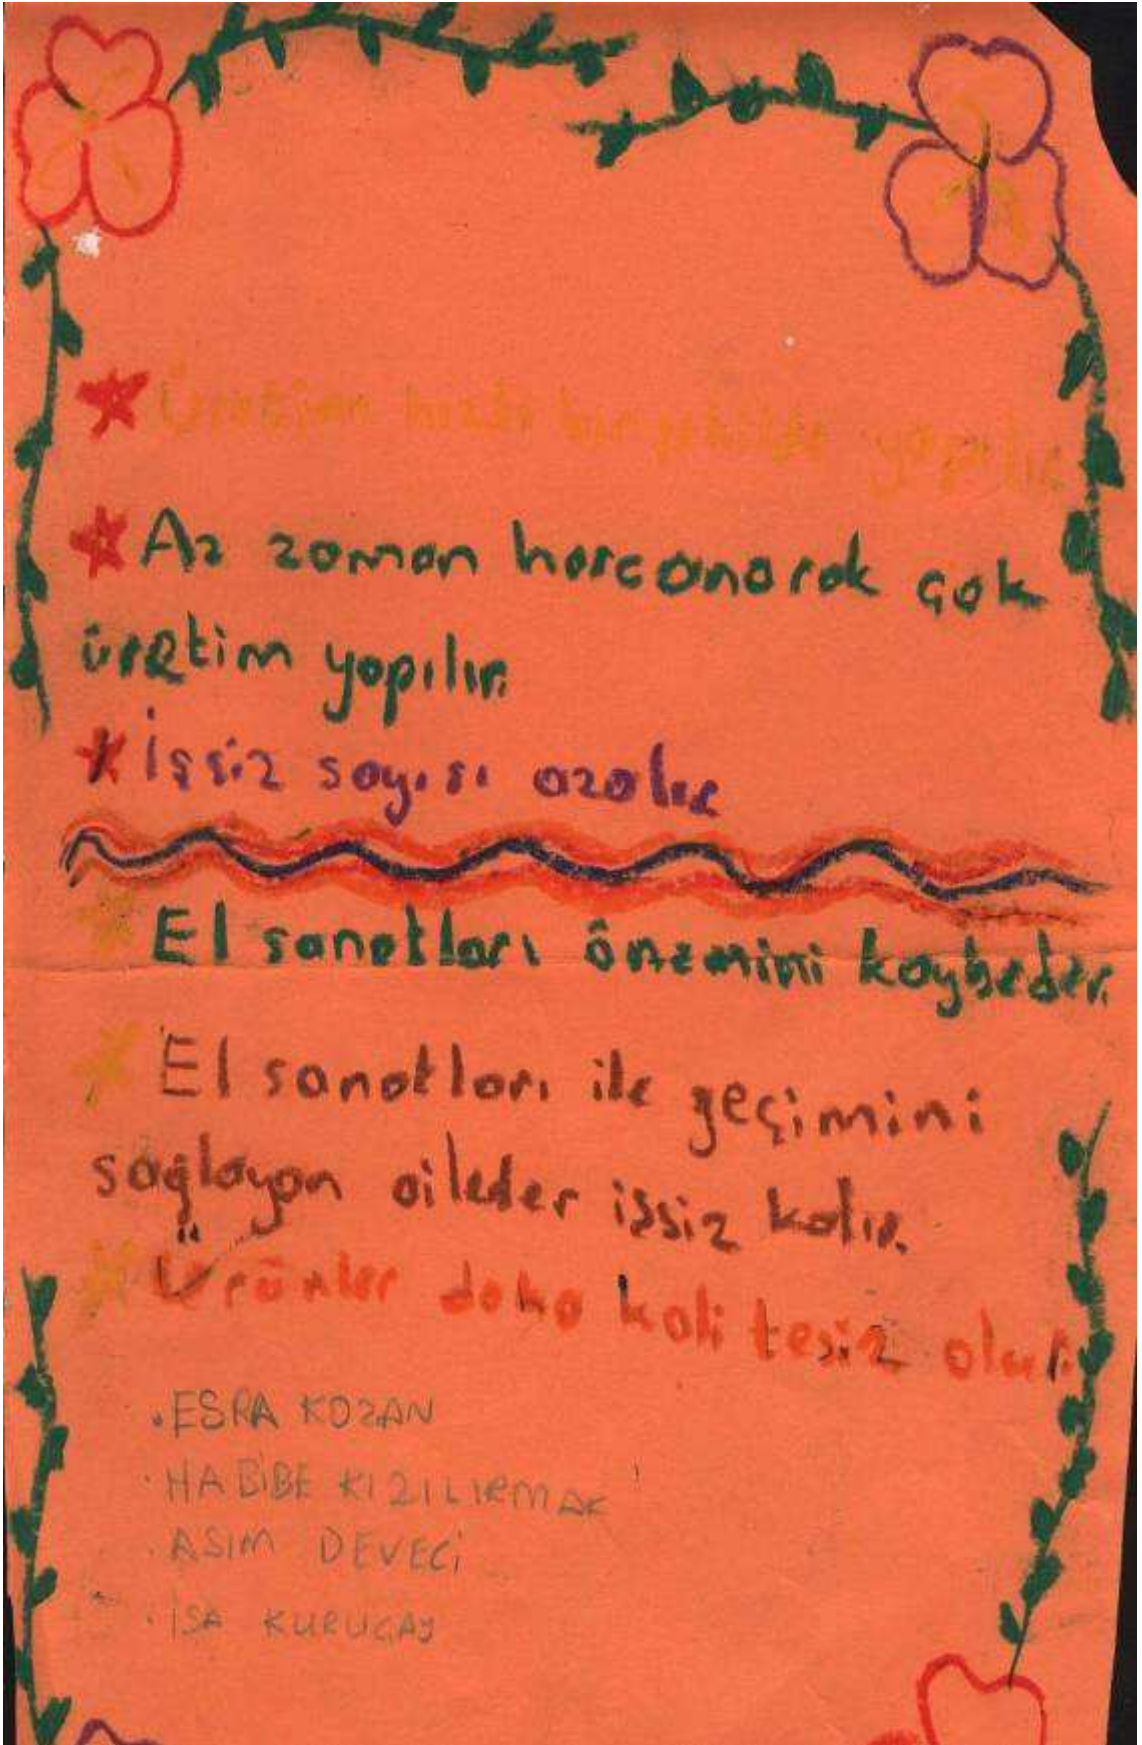 Üretim hızlı bir şekilde yapılır
Az zaman harcanarak çok
üretim yapılır.
İşsiz sayısı azalır
El sanatları önemini kaybeder.
El sanatları ile geçimini
sağlayan aileder işsiz kalır.
Ürünler daha kalitesiz olur.
.ESRA KOZAN
.HABİBE KIZILIRMAK
.ASIM DEVECİ
.İSA KURUÇAY